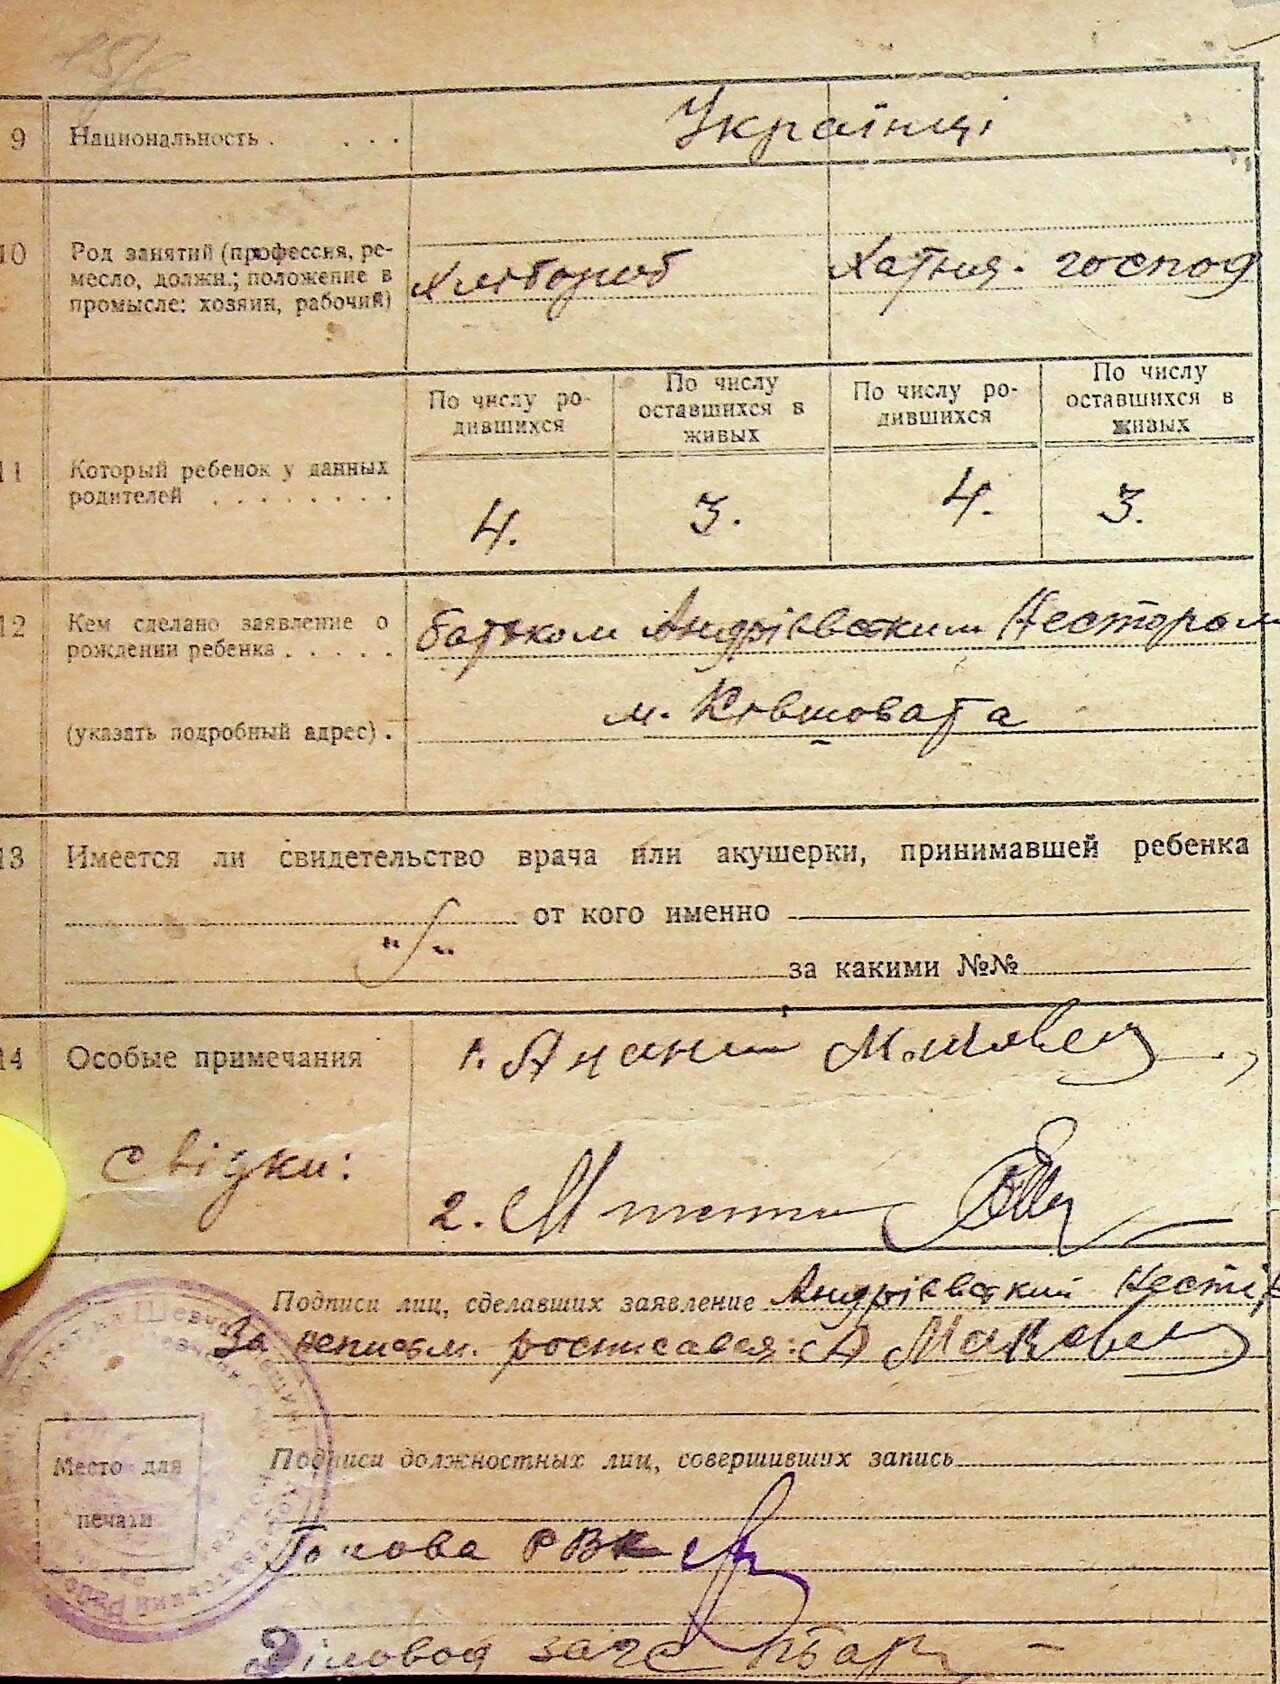 9 Национальность . . . . Українці
10 Род занятий (профессия, ре-
месло, должн.; положение в
промысле: хозяин, рабочий)
хлібороб Хатня. господ
По числу ро-
дившихся
По числу
оставшихся в
живых
По числу ро-
дившихся
По числу
оставшихся в
живых
11 Который ребенок у данных
родителей . . . . . . . .
4. 3. 4. 3.
12 Кем сделано заявление о
рождении ребенка . . . . .
батьком Андрієвським Нестором
(указать подробный адрес) .
м. Ковшовата
13 Имеется ли свидетельство врача или акушерки, принимавшей ребенка
от кого именно
за какими №№
14 Особые примечания
1. Ананій
Свідки:
2.
Подписи лиц, сделавших заявление Андрієвский Нестір
За неписьм. росписався: А Маковец
Подписи должностных лиц, совершивших запись
Место для
печати
Голова РВК
Діловод загс